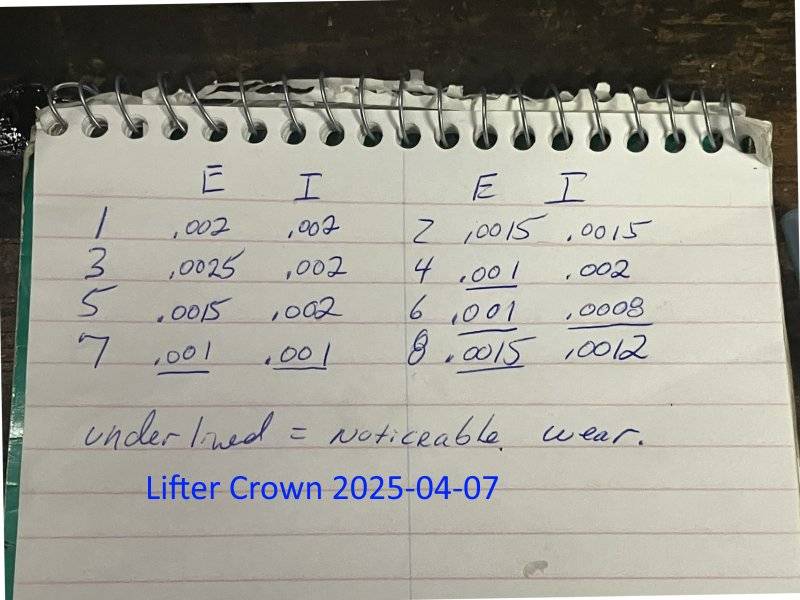 E I E I
1 .002 .002 2 .0015 .0015
3 .0025 .002 4 .001 .002
5 .0015 .002 6 .001 .0008
7 .001 .001 8 .0015 .0012
underlined = noticeable wear.
Lifter Crown 2025-04-07